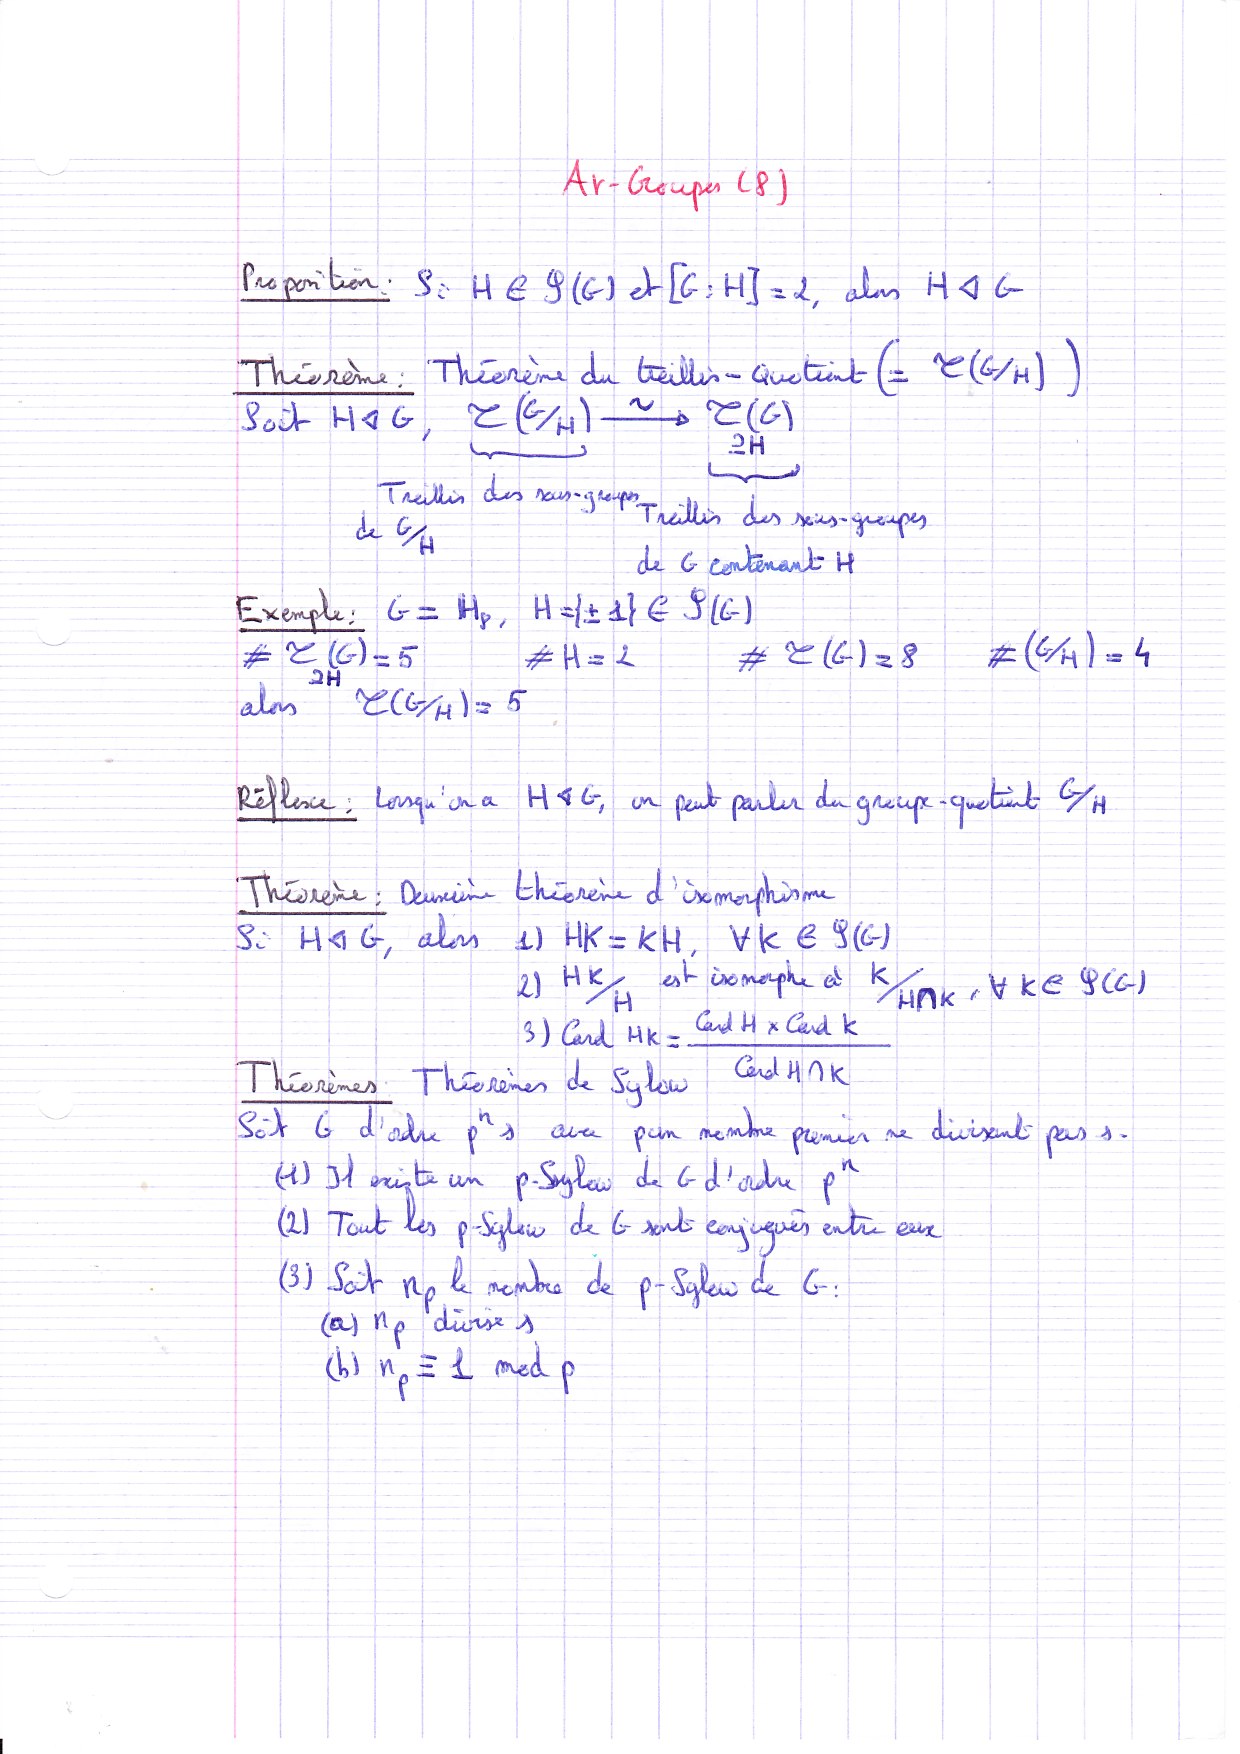 Ar-Groupes (8)
Proposition: Si H ∈ 𝒮(G) et [G:H] = 2, alors H ◁ G
Théorème: Théorème du treillis-Quotient (= 𝒯(G/H))
Soit H ◁ G, 𝒯(G/H) ⥲ 𝒯(G)
⊇H
Treillis des sous-groupes
de G/H
Treillis des sous-groupes
de G contenant H
Exemple: G = H₈, H = {±1} ∈ 𝒮(G)
# 𝒯(G) = 5 # H = 2 # 𝒯(G) = 8 # (G/H) = 4
⊇H
alors 𝒯(G/H) = 5
Réflexe: Lorsqu'on a H ◁ G, on peut parler du groupe-quotient G/H
Théorème: Deuxième théorème d'isomorphisme
Si H ◁ G, alors 1) HK = KH, ∀K ∈ 𝒮(G)
2) HK/H est isomorphe à K/H∩K, ∀ K ∈ 𝒮(G)
3) Card HK = Card H × Card K / Card H∩K
Théorèmes: Théorèmes de Sylow
Soit G d'ordre pⁿs avec p un nombre premier ne divisant pas s.
(1) Il existe un p-Sylow de G d'ordre pⁿ
(2) Tout les p-Sylow de G sont conjugués entre eux
(3) Soit n_p le nombre de p-Sylow de G:
(a) n_p divise s
(b) n_p ≡ 1 mod p